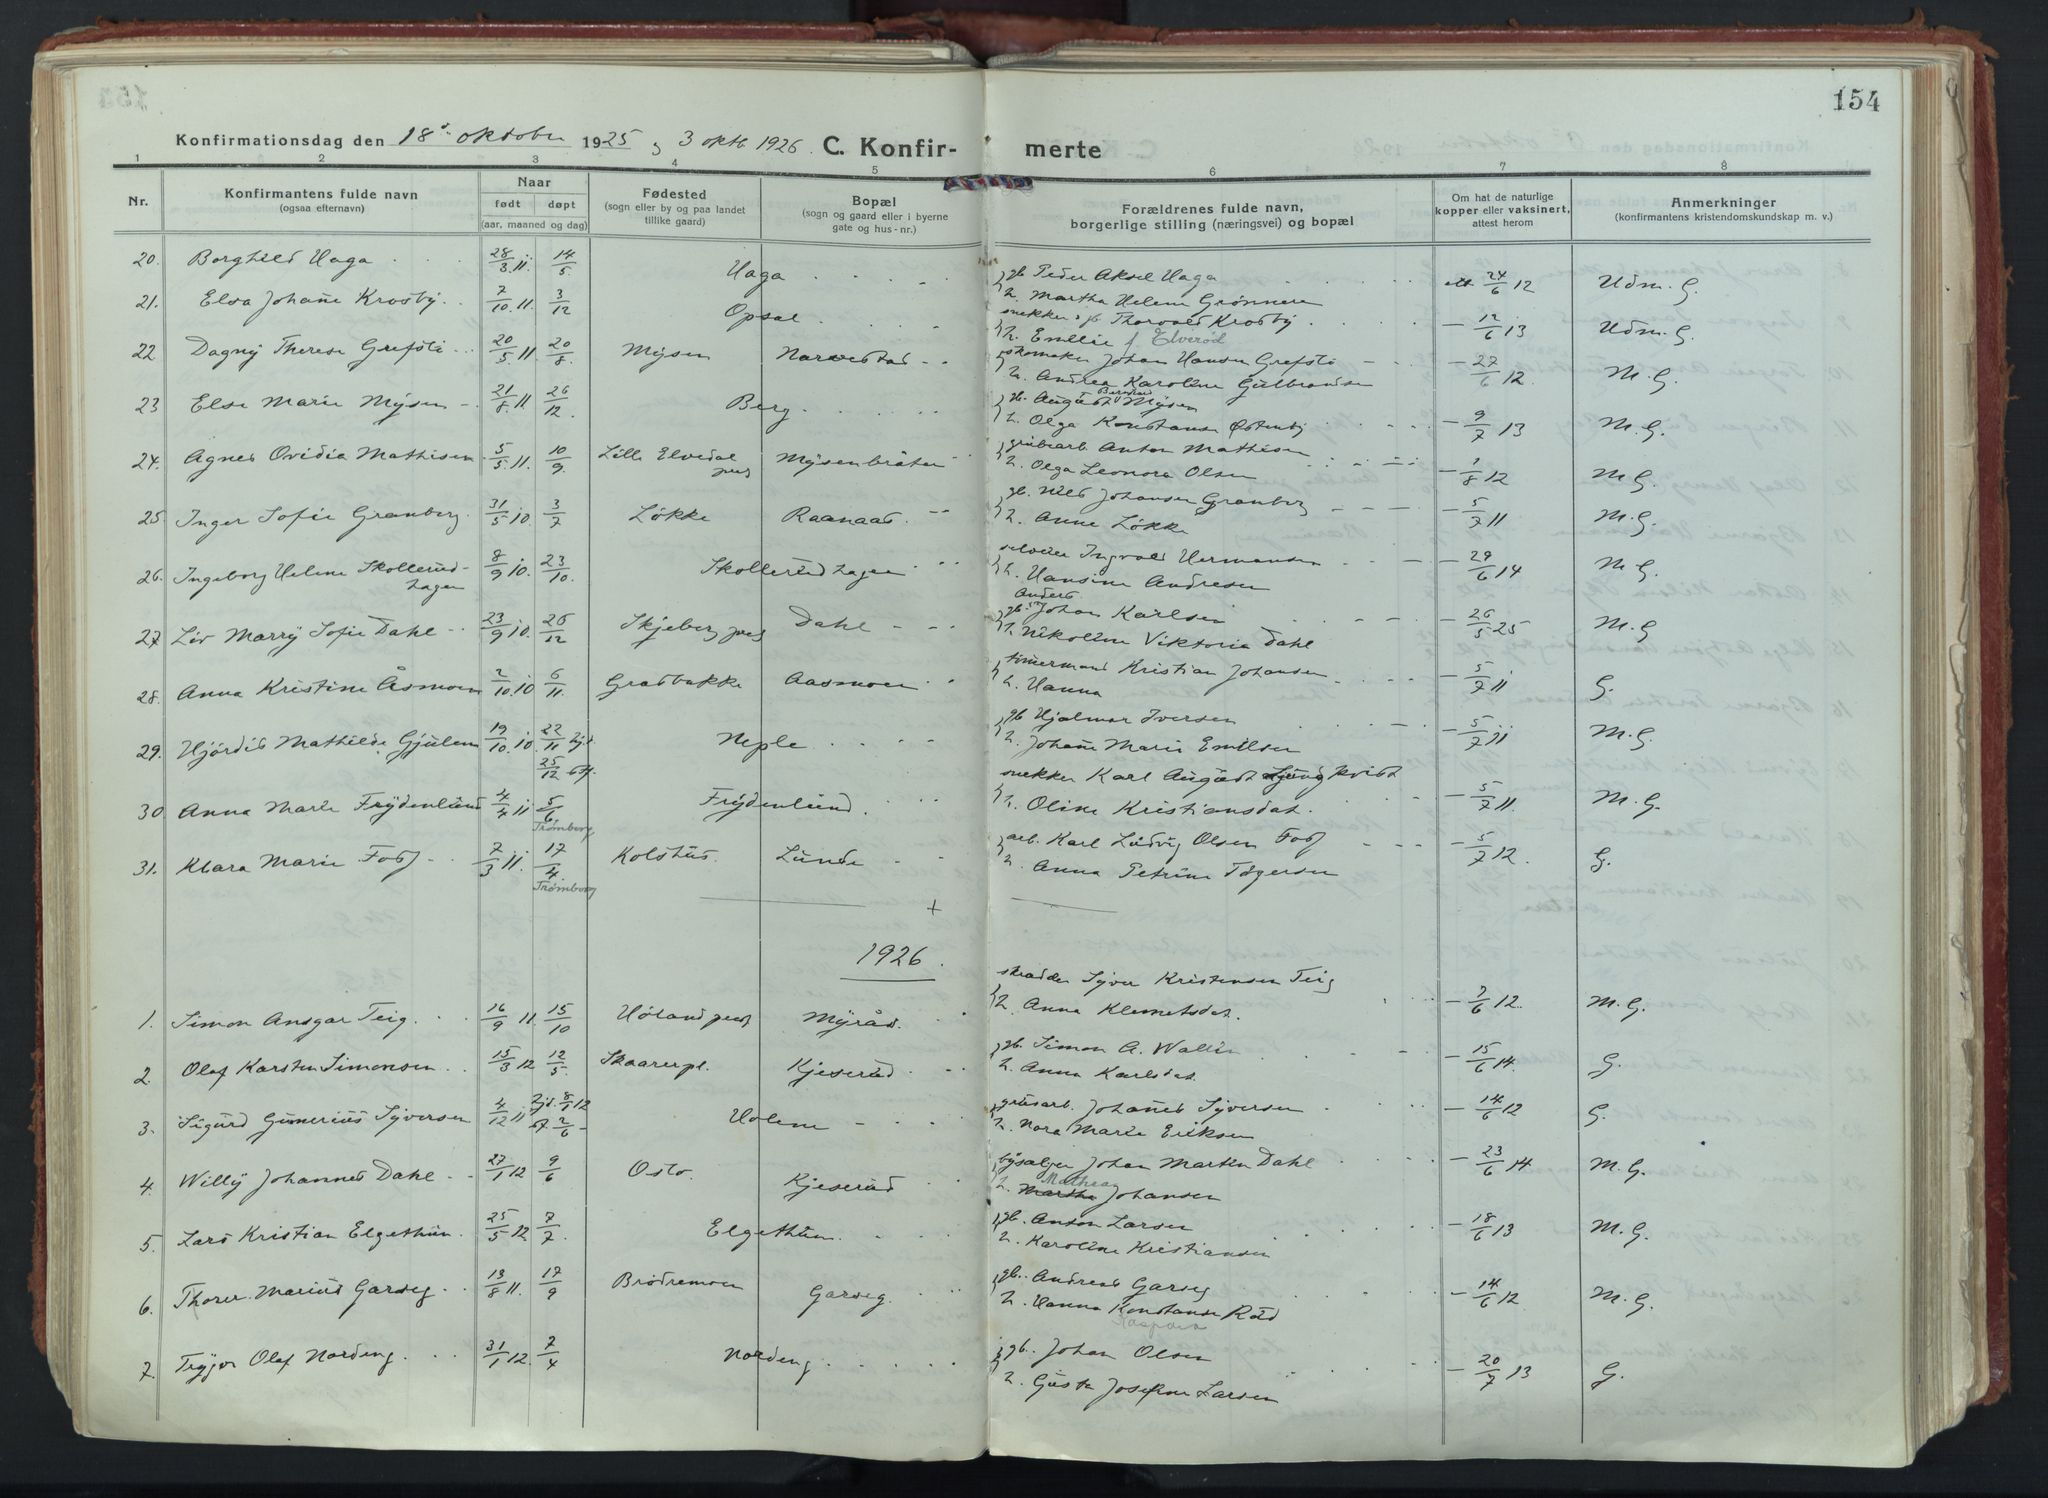 154
Konfirmationsdag den 18de oktober 1925 og 3 oktb 1926. C. Konfir- merte
1 2 3 4 5 6 7 8
Nr. Konfirmantens fulde navn (ogsaa efternavn) Naar født døpt (aar, maaned og dag) Fødested (sogn eller by og paa landet tillike gaard) Bopæl (sogn og gaard eller i byerne gate og hus-nr.) Forældrenes fulde navn, borgerlige stilling (næringsvei) og bopæl Om hat de naturlige kopper eller vaksinert, attest herom Anmerkninger (konfirmantens kristendomskundskap m. v.)
20. Borghild Haga 28/3 11. 14/5 Haga gb. Peder Aksel Haga
h. Martha Helene Grønnern att. 24/6 12 Udm. G.
21. Elsa Johanne Krosby 7/10 11. 3/12 Opsal snekker, gb Thorvald Krosby
h. Emilie f. Elverød - 12/6 13 Udm. G.
22 Dagny Therese Grefsli 20/5 11. 20/8. Mysen Narvestad skomaker Johan Hansen Grefsli
h. Andrea Karoline Gulbrandsen - 27/6 12. M. G.
23 Else Marie Mysen 21/8 11 26/12. Berg gb. August Mysen
h. Olga Konstanse Østenby - 9/7 13 M. G.
24. Agnes Ovidia Mathisen 5/5 11. 10/9. Lille Elvedal pres Mysenbråten grubearb. Anton Mathisen
h. Olga Leonora Olsen - 1/8 12 M G.
25. Inger Sofie Granberg 31/5 10. 3/7 Løkke Raanaas gb. Nils Johansen Granberg
h. Anne Løkke - 5/7 11 M. G.
26. Ingeborg Helene Skollerud-
hagen 8/9 10. 23/10. Skollerudhagen selveier Ingvald Hermansen
h. Hansine Andresen - 29/6 14 M G.
27 Liv Marry Sofie Dahl 23/9 10. 26/12 Skjeberg pres Dahl Anders
gb. Johan Karlsen
h. Nikoline Viktoria Dahl - 26/5 25 M. G
28. Anna Kristine Åsmoen 2/10. 10 6/11. Gradbakke Aasmoen tømmermand Kristian Johansen
h. Hanna - 5/7 11 G.
29. Hjørdis Mathilde Gjulem 19/10. 10 22/11 hjd. 25/12 stf. Neple gb Hjalmar Iversen
h. Johanne Marie Emilsen - 5/7 11 M. G.
30. Anna Marie Frydenlund 4/4 11 5/6 Trømborg Frydenlund. snekker Karl August Ljungkvist
h. Oline Kristiansdat. - 5/7 11. M. G.
31. Klara Marie Foss 7/3 11. 17/4. Trømborg Kolshus. Lunde arb. Karl Ludvig Olsen Foss
h. Anna Petrine Tøgersen - 5/7 12. G.
+
1926.
1. Simon Ansgar Teig 16/9 11. 15/10 Høland prest Myrås. skrædder Syver Kristensen Teig
h. Anna Klemetsdat. - 7/6 12. M. G.
2. Olaf Karsten Simonsen 15/3 12 12/5. Skaarerpl. Kjeserud gb. Simon A. Wallin
h. Anna Karlsdat. - 15/6 14. G.
3. Sigurd Gunerius Syversen 4/12 11 hjd. 8/1 12 stf. 2/6 Holene grusarb. Johannes Syversen
h. Nora Marie Eriksen - 14/6 12 G.
4. Willy Johannes Dahl 27/1 12 9/6 Oslo. Kjeserud bysælger Johan Martin Dahl
h. Martha Mathea Johansen - 23/6 14 M. G.
5. Lars Kristian Elgethun. 25/5 12 7/7. Elgethun gb. Anton Larsen
h. Karoline Kristiansen - 18/6 13 M. G.
6. Thorer Marius Garseg 13/8 11. 17/9 Brødremoen Garseg gb. Andreas Garseg
h. Hanna Konstanse Rud
Kaspara - 14/6 12 M. G.
7. Trygve Olaf Nordeng 31/1 12. 7/4 Nordeng gb. Johan Olsen
h. Gusta Josefine Larsen - 20/7 13 G.